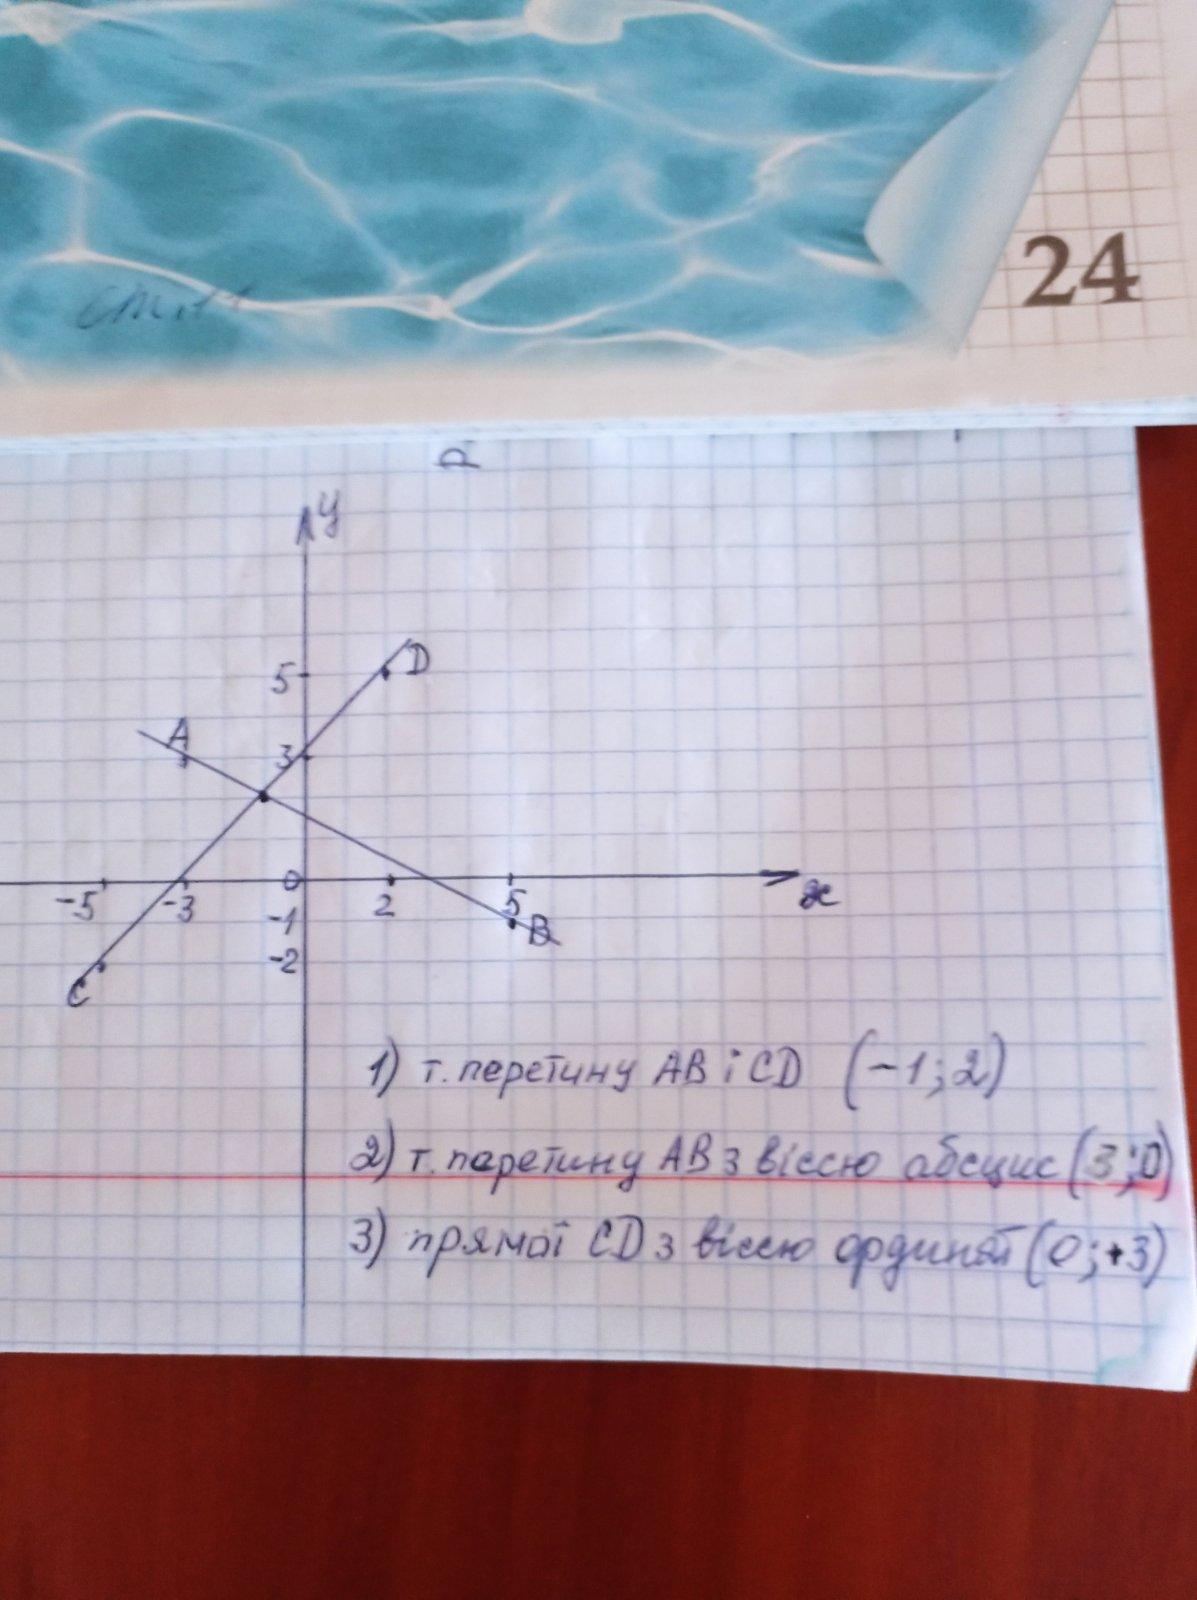 24
y
5
D
A
3
-5
-3
0
2
5
x
-1
B
-2
C
1) т. перетину AB і CD (-1; 2)
2) т. перетину AB з віссю абсцис (3; 0)
3) прямої CD з віссю ординат (0; +3)